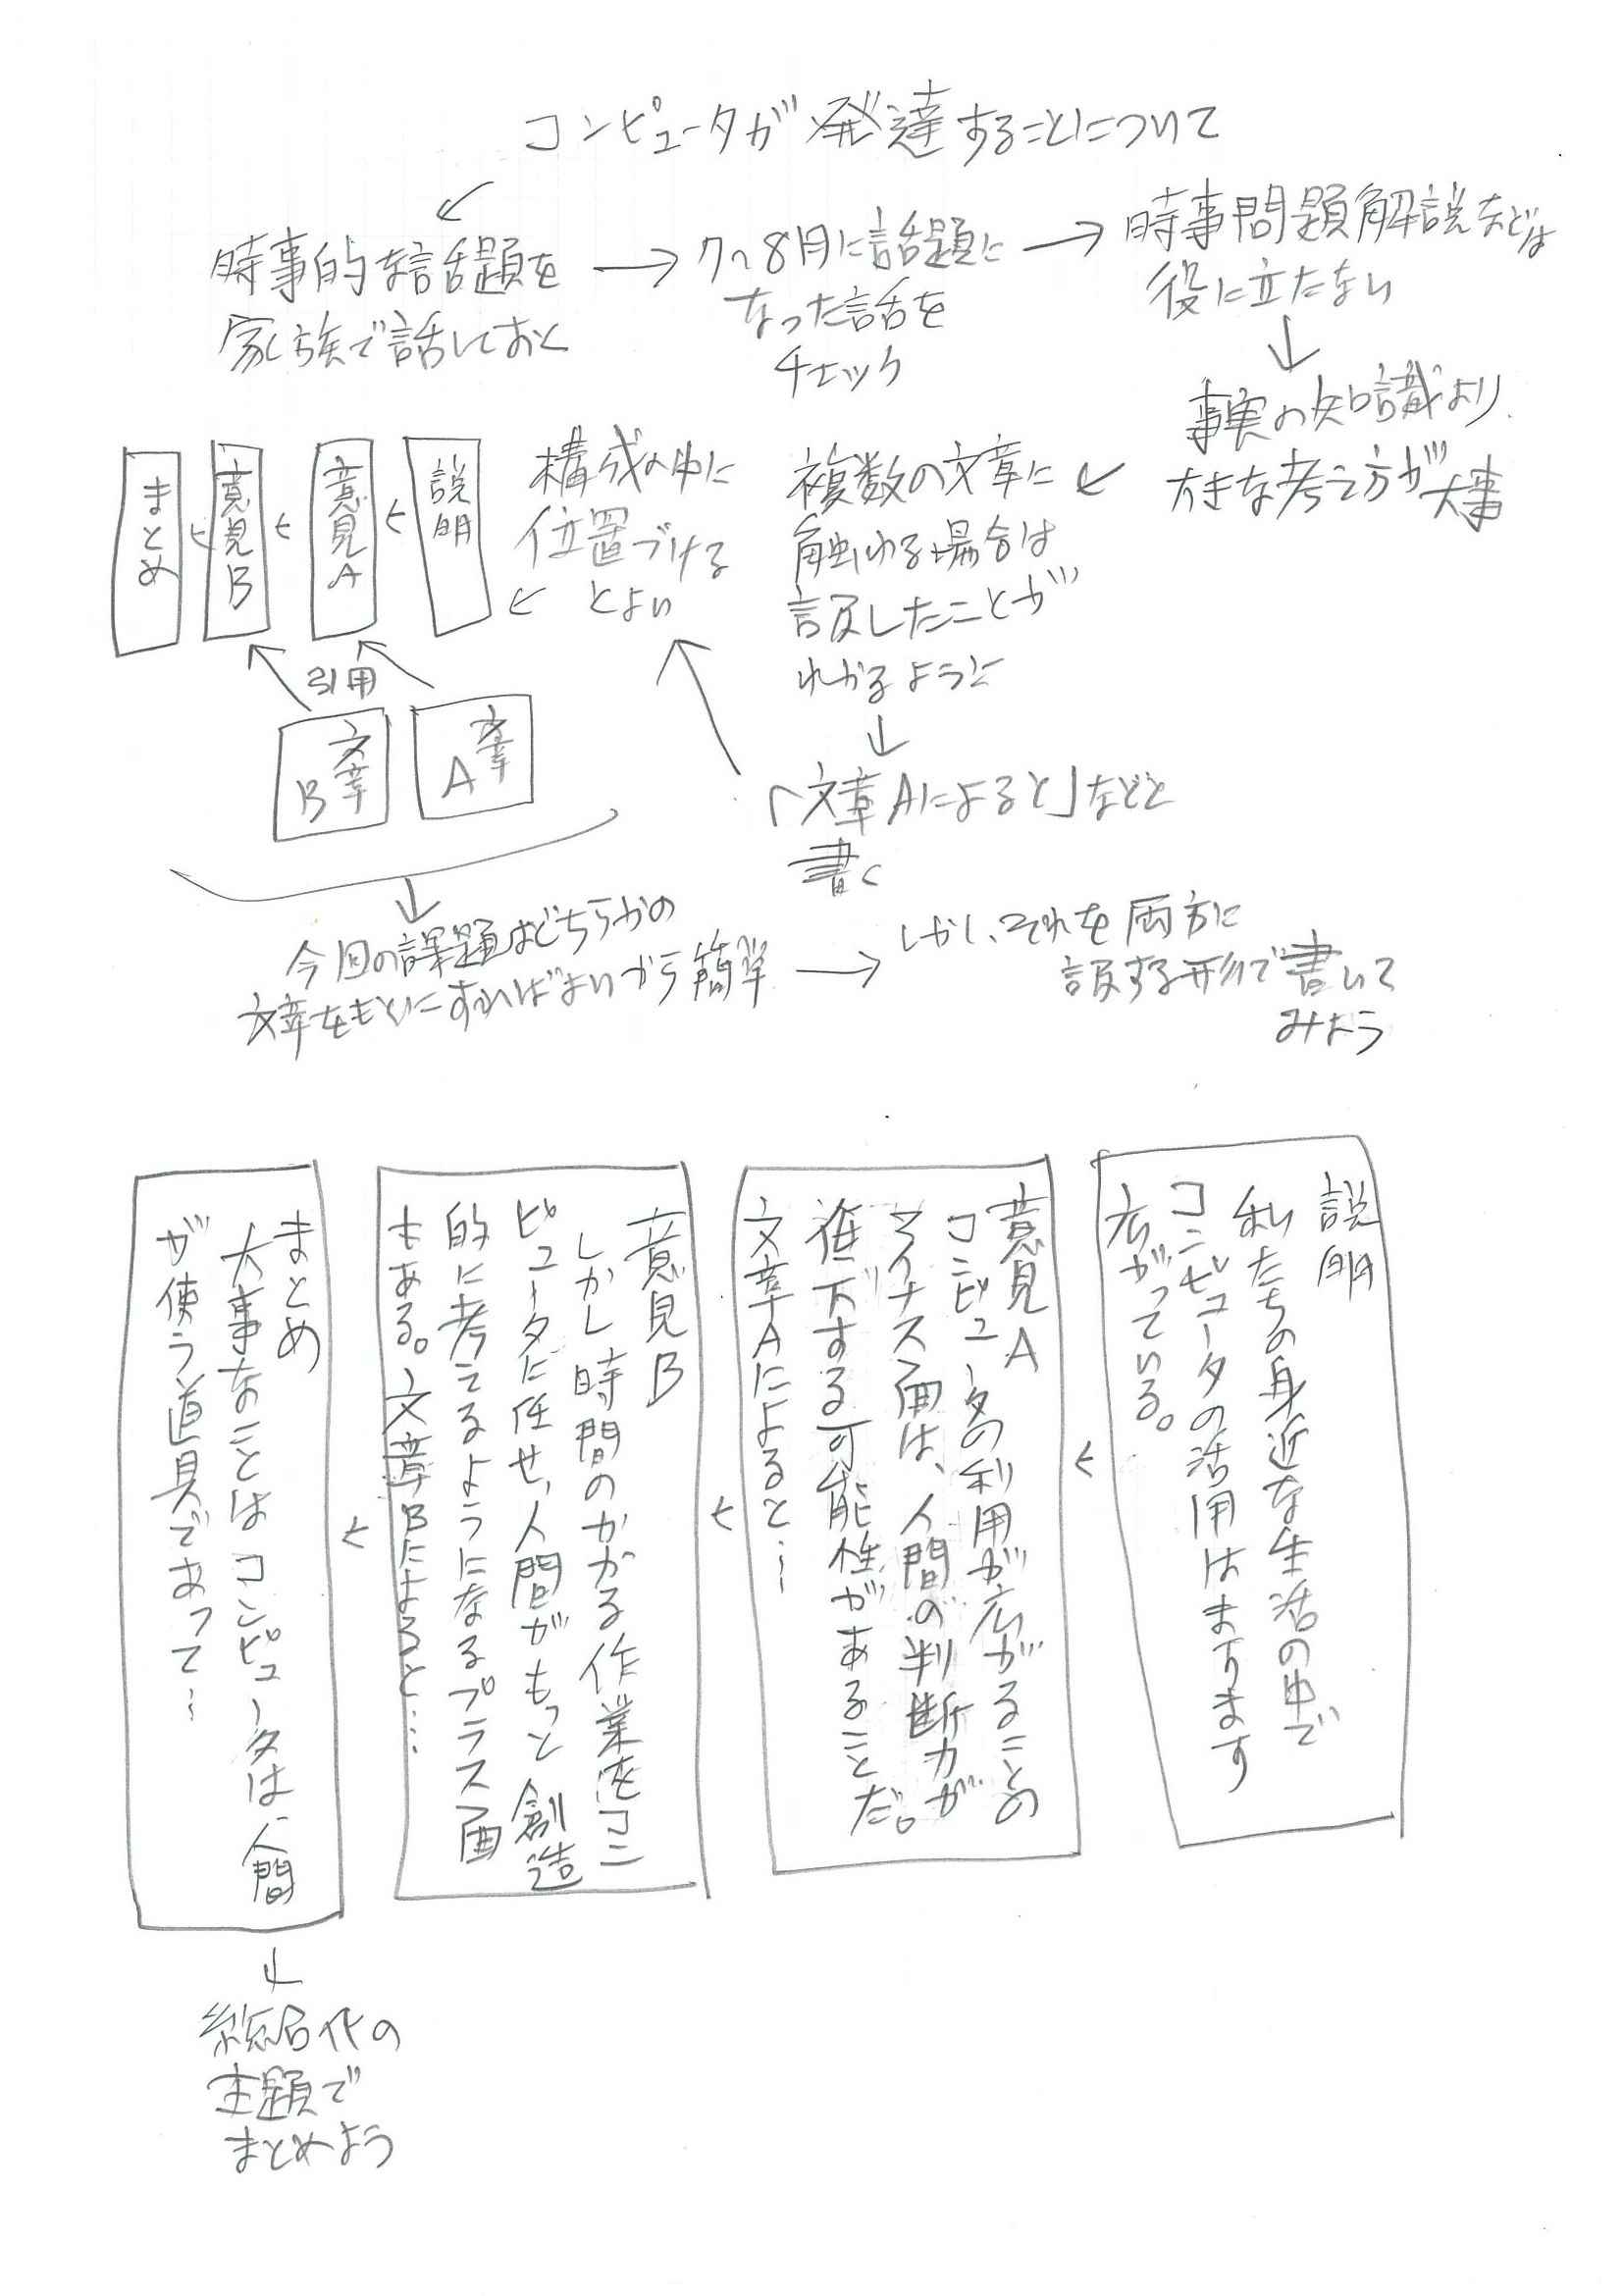 コンピュータが発達することについて
時事的な話題を
家族で話しておく
7~8月に話題に
なった話を
チェック
時事問題解説などは
役に立たない
事実の知識より
大きな考え方が大事
複数の文章に
触れる場合は
言及したことが
わかるように
「文章Aによると」などと
書く
構成の中に
位置づける
とよい
説明
意見A
意見B
まとめ
引用
文章
A
文章
B
今回の課題はどちらかの
文章をもとにすればよいから簡単
しかし、それを両方に
言及する形で書いて
みよう
説明
私たちの身近な生活の中で
コンピュータの活用はますます
広がっている。
意見A
コンピュータの利用が広がることの
マイナス面は、人間の判断力が
低下する可能性があることだ。
文章Aによると…
意見B
しかし時間のかかる作業をコン
ピュータに任せ、人間がもっと創造
的に考えるようになるプラス面
もある。文章Bによると…
まとめ
大事なことはコンピュータは、人間
が使う道具であって…
総合化の
主題で
まとめよう